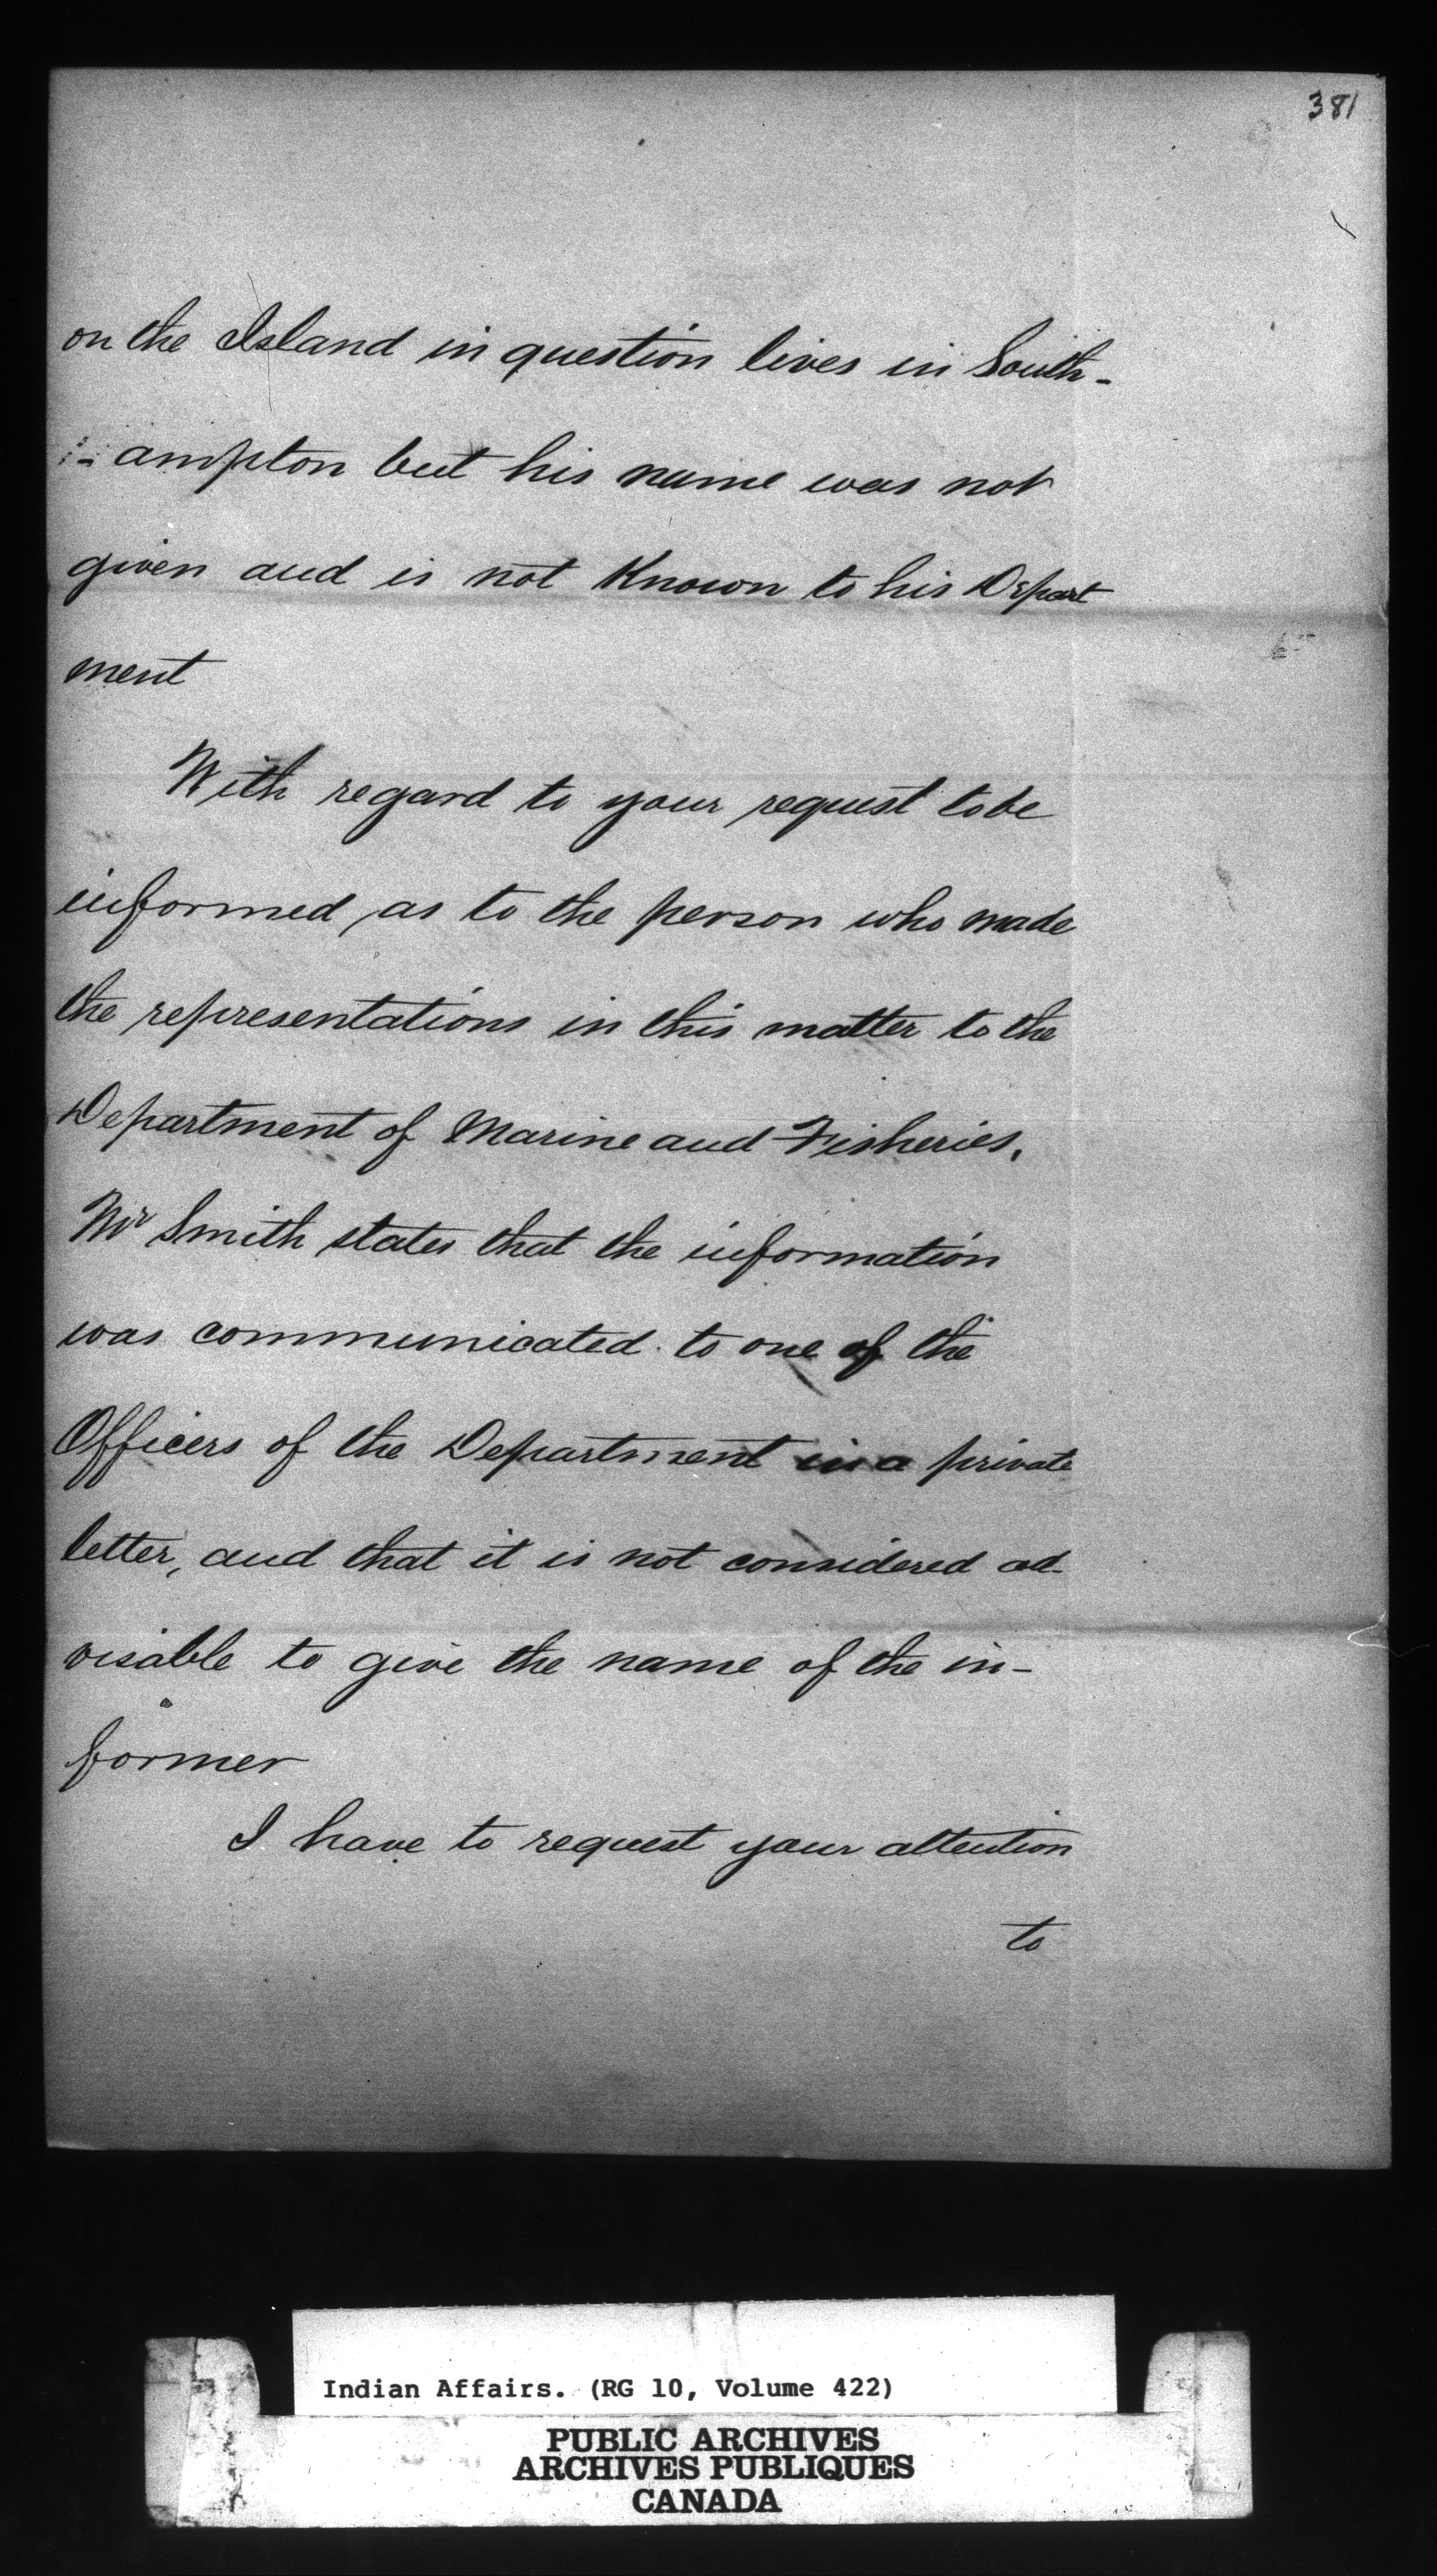 381
on the Island in question lives in South-
-ampton but his name was not
given and is not Known to his Depart
ment
With regard to your request to be
informed as to the person who made
the representations in this matter to the
Department of Marine and Fisheries,
Mr Smith states that the information
was communicated to one of the
Officers of the Department in a private
letter, and that it is not considered ad-
visable to give the name of the in-
former
I have to request your attention
to
Indian Affairs. (RG 10, Volume 422)
PUBLIC ARCHIVES
ARCHIVES PUBLIQUES
CANADA